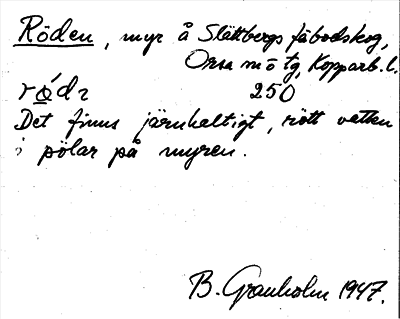 Röden, myr å Slättbergs fäbodskog,
Orsa m o tg, Kopparb. l.
250
Det finns järnhaltigt, rött vatten
i pölar på myren.
B. Granholm 1947.